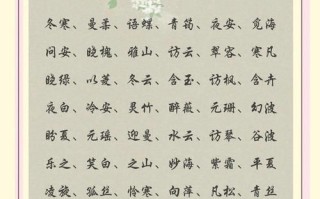 冬寒、曼柔、语蝶、青筠、夜安、觅海
问安、晓槐、雅山、访云、翠容、寒凡
晓绿、以菱、冬云、含玉、访枫、含卉
夜白、冷安、灵竹、醉薇、元珊、幻波
盼夏、元瑶、迎曼、水云、访琴、谷波
乐之、笑白、之山、妙海、紫霜、平夏
凌旋、孤丝、怜寒、向萍、凡松、青丝